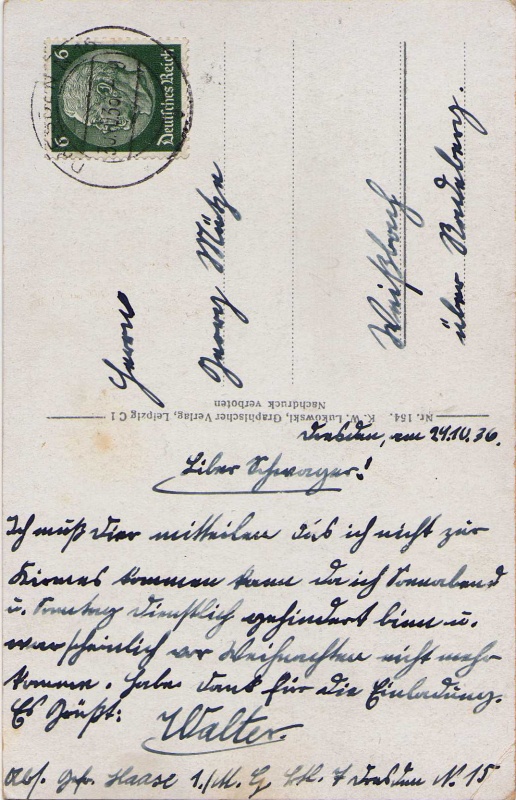 Deutsches Reich
6 6
Herrn
Georg Mütze
Weißbach
über Radeberg.
Nr. 154. K. W. Lukowski, Graphischer Verlag, Leipzig C 1
Nachdruck verboten
Dresden, am 29.10.36.
Liber Schwager!
Ich muß dier mitteilen das ich nicht zur
Kirmes kommen kann da ich Sonnabend
u. Sonntag dienstlich gehindert binn u.
warscheinlich vor Weihnachten nicht mehr
komme. Habe dank für die Einladung.
Es Grüßt:
Walter.
Abs. Gefr. Haase 1./M. G. 7 Dresden N. 15